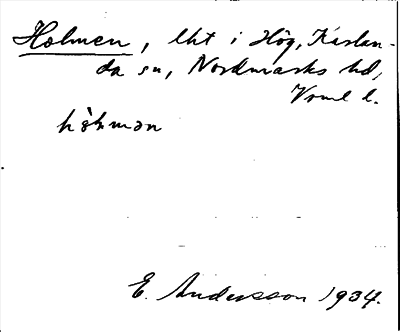 Holmen, lht i Hög, Karlan-
da sn, Nordmarks hd,
Vrml l.
hòlmən
E. Andersson 1934.